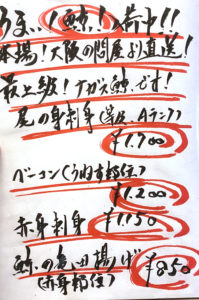 うまい!鯨!入荷中!!
本場!大阪の問屋より直送!
最上級!ナガス鯨です!
尾の身刺身(等級、Aランク)
¥1.700
ベーコン(うね部位)
¥1.200
赤身刺身 ¥1.150
鯨の竜田揚げ ¥850
(赤身部位)